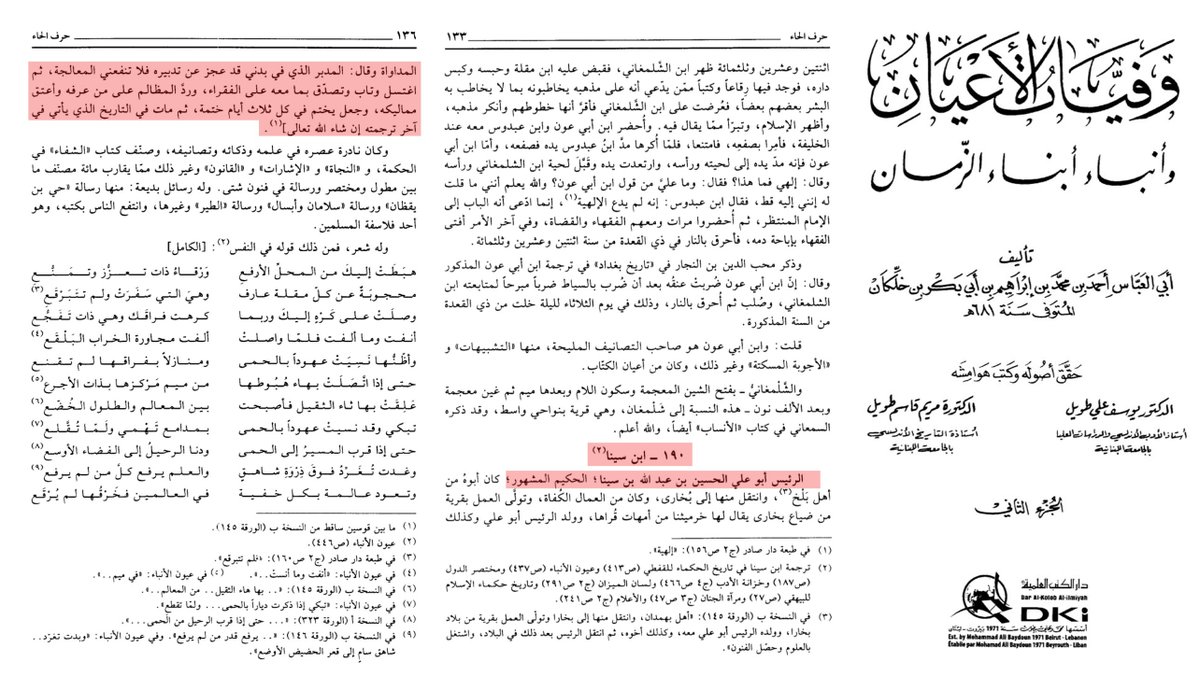 وفيات الأعيان
وأنباء أبناء الزمان
تأليف
أبي العباس أحمد بن محمد بن إبراهيم بن أبي بكر بن خلكان
المتوفى سنة ٦٨١هـ
حقق أصوله وكتب هوامشه
الدكتور يوسف علي طويل
الدكتورة مريم قاسم طويل
أستاذ الأدب الأندلسي والدراسات العليا
أستاذة التاريخ الأندلسي
بالجامعة اللبنانية
بالجامعة اللبنانية
الجزء الثاني
دار الكتب العلمية
Dar Al-Kotob Al-ilmiyah
DKi
Est. by Mohammad Ali Baydoun 1971 Beirut - Lebanon
Établie par Mohamad Ali Baydoun 1971 Beyrouth - Liban
حرف الحاء ١٣٣
اثنتين وعشرين وثلثمائة ظهر ابن الشلمغاني، فقبض عليه ابن مقلة وحبسه وكبس
داره، فوجد فيها رقاعاً وكتباً ممّن يدّعي أنه على مذهبه يخاطبونه بما لا يخاطب به
البشر بعضهم بعضاً، فعُرضت على ابن الشلمغاني فأقرّ أنها خطوطهم وأنكر مذهبه،
وأظهر الإسلام، وتبرّأ ممّا يقال فيه. وأُحضر ابن أبي عون وابن عبدوس معه عند
الخليفة، فأُمرا بصفعه، فامتنعا، فلمّا أُكرها مدّ ابنُ عبدوس يده فصفعه، وأمّا ابن أبي
عون فإنه مدّ يده إلى لحيته ورأسه، وارتعدت يده وقبّل لحية ابن الشلمغاني ورأسه
وقال: إلهي فما هذا؟ فقال: وما عليّ من قول ابن أبي عون؟ والله يعلم أنني ما قلت
له إنني إليه قط، فقال ابن عبدوس: إنه لم يدع الإلهية(١)، إنما ادّعى أنه الباب إلى
الإمام المنتظر، ثم أُحضروا مرات ومعهم الفقهاء والقضاة، وفي آخر الأمر أفتى
الفقهاء بإباحة دمه، فأحرق بالنار في ذي القعدة من سنة اثنتين وعشرين وثلثمائة.
وذكر محب الدين بن النجار في «تاريخ بغداد» في ترجمة ابن أبي عون المذكور
وقال: إنّ ابن أبي عون ضُربتْ عنقُه بعد أن ضُرب بالسياط ضرباً مبرحاً لمتابعته ابن
الشلمغاني، وصُلب ثم أُحرق بالنار، وذلك في يوم الثلاثاء لليلة خلت من ذي القعدة
من السنة المذكورة.
قلت: وابن أبي عون هو صاحب التصانيف المليحة، منها «التشبيهات» و
«الأجوبة المسكتة» وغير ذلك، وكان من أعيان الكتّاب.
والشّلْمغانيُّ ـ بفتح الشين المعجمة وسكون اللام وبعدها ميم ثم غين معجمة
وبعد الألف نون ـ هذه النسبة إلى شلْمغان، وهي قرية بنواحي واسط، وقد ذكره
السمعاني في كتاب «الأنساب» أيضاً، والله أعلم.
١٩٠ ـ ابن سينا(٢)
الرئيس أبو علي الحسين بن عبد الله بن سينا؛ الحكيم المشهور؛ كان أبوهُ من
أهل بَلْخ(٣)، وانتقل منها إلى بُخارى، وكان من العمال الكُفاة، وتولّى العمل بقرية
من ضياع بخارى يقال لها خرميثنا من أمهات قُراها، وولد الرئيس أبو علي وكذلك
(١) في طبعة دار صادر (ج٢ ص١٥٦): «إلهية».
(٢) ترجمة ابن سينا في تاريخ الحكماء للقفطي (ص٤١٣) وعيون الأنباء (ص٤٣٧) ومختصر الدول
(ص١٨٧) وخزانة الأدب (ج٤ ص٤٦٦) ولسان الميزان (ج٢ ص٢٩١) وتاريخ حكماء الإسلام
للبيهقي (ص٢٧) ومرآة الجنان (ج٣ ص٤٧) والأعلام (ج٢ ص٢٤١).
(٣) في النسخة ب (الورقة ١٤٥): «أهل بهمدان، وانتقل منها إلى بخارا وتولّى العمل بقرية من بلاد
بخارا، وولده الرئيس أبو علي معه، وكذلك أخوه، ثم انتقل الرئيس بعد ذلك في البلاد، واشتغل
بالعلوم وحصّل الفنون».
١٣٦ حرف الحاء
المداواة وقال: المدبر الذي في بدني قد عجز عن تدبيره فلا تنفعني المعالجة، ثم
اغتسل وتاب وتصدّق بما معه على الفقراء، وردَّ المظالم على من عرفه وأعتق
مماليكه، وجعل يختم في كل ثلاث أيام ختمة، ثم مات في التاريخ الذي يأتي في
آخر ترجمته إن شاء الله تعالى](١).
وكان نادرة عصره في علمه وذكائه وتصانيفه، وصنّف كتاب «الشفاء» في
الحكمة، و «النجاة» و «الإشارات» و «القانون» وغير ذلك ممّا يقارب مائة مصنّف ما
بين مطول ومختصر ورسالة في فنون شتى. وله رسائل بديعة: منها رسالة «حي بن
يقظان» ورسالة «سلامان وأبسال» ورسالة «الطير» وغيرها، وانتفع الناس بكتبه، وهو
أحد فلاسفة المسلمين.
وله شعر، فمن ذلك قوله في النفس(٢): [الكامل]
هبَطتْ إليكَ منَ المحلِّ الأرفعِ ورْقاءُ ذات تعزُّزٍ وتمنُّعِ
محجوبةٌ عن كلّ مقلة عارف وهيَ التي سَفَرَتْ ولم تتبَرْقَعِ(٣)
وصلَتْ على كَرْهٍ إليكَ وربما كرهت فراقَك وهي ذات تفَجُّعِ
ألفت وما ألفت فلمّا واصلتْ ألفت مجاورة الخراب البلْقَعِ(٤)
وأظنُّها نَسِيَتْ عهوداً بالحمى ومنازلاً بفراقها لم تقنعِ
حتى إذا اتّصلَتْ بهاء هُبوطها من ميم مَرْكزها بذات الأجرعِ(٥)
عَلِقَتْ بها ثاء الثقيل فأصبحت بين المعالم والطلول الخُضّعِ(٦)
تبكي وقد نسيتْ عهوداً بالحمى بمدامعٍ تَهْمي ولمّا تُقْلعِ(٧)
حتى إذا قربَ المسيرُ إلى الحمى ودنا الرحيلُ إلى الفضاء الأوسعِ(٨)
وغدت تُغَرّدُ فوق ذِرْوَةِ شاهقٍ والعلم يرفع كلّ من لم يرفعِ(٩)
وتعود عالمة بكل خفية في العالمين فخَرْقُها لم يُرْقَعِ
(١) ما بين قوسين ساقط من النسخة ب (الورقة ١٤٥).
(٢) عيون الأنباء (ص٤٤٦).
(٣) في طبعة دار صادر (ج٢ ص١٦٠): «فلم تتبرقع».
(٤) في عيون الأنباء: «أنفت وما أنستْ..». (٥) في عيون الأنباء: «في ميم..».
(٦) في النسخة ب (الورقة ١٤٥): «.. بها هاء الثقيل.. من المعالم..».
(٧) في عيون الأنباء: «تبكي إذا ذكرت دياراً بالحمى... ولمّا تقطع».
(٨) في النسخة أ (الورقة ٣٢٣): «... حتى إذا قرب الرحيل من الحمى...».
(٩) في النسخة ب (الورقة ١٤٦): «.. يرفع قدر من لم يرفع». وفي عيون الأنباء: «وبدت تغرّد..
شاهق سامٍ إلى قعر الحضيض الأوضع».